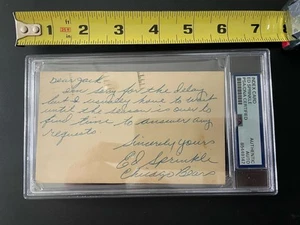 1 2 3 4 5 6 7
Dear Jack -
Im sorry for the delay
but I usually have to wait
until the season is over to
find time to answer any
requests
Sincerely yours
Ed Sprinkle
Chicago Bears
INDEX CARD
ED SPRINKLE
AUTHENTIC
AUTO